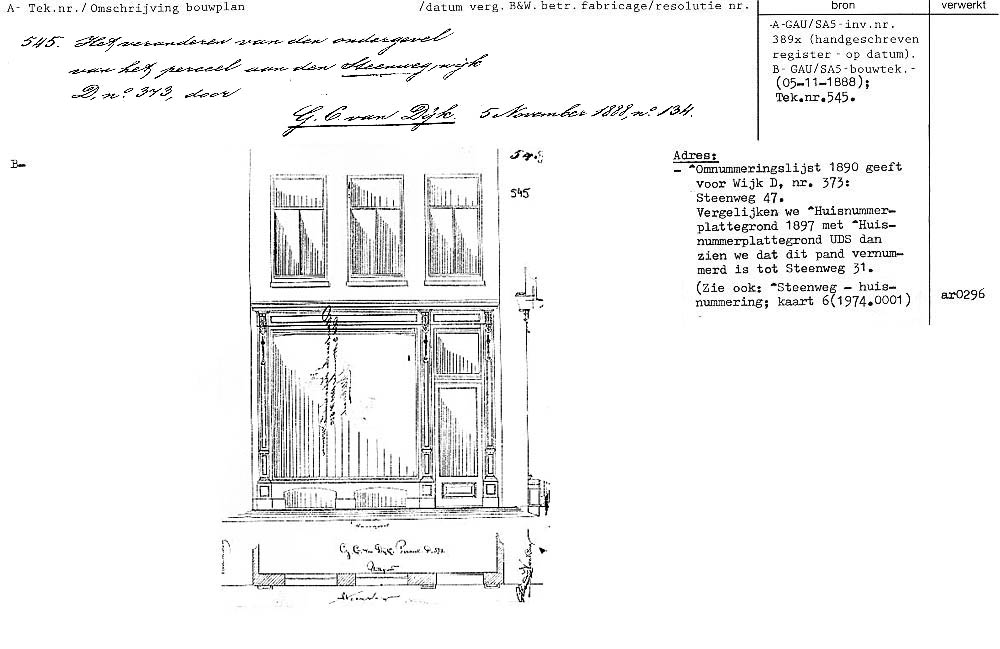 A- Tek.nr./Omschrijving bouwplan /datum verg. B&W. betr. fabricage/resolutie nr. bron verwerkt
545. Het veranderen van den ondergevel
van het perceel aan den Steenweg, wijk
D, no. 373, door
G. C. van Dijk. 5 November 1888, no. 134.
A-GAU/SA5-inv.nr.
389x (handgeschreven
register - op datum).
B- GAU/SA5-bouwtek.-
(05-11-1888);
Tek.nr.545.
B-
545
545
Adres:
- ^Omnummeringslijst 1890 geeft
voor Wijk D, nr. 373:
Steenweg 47.
Vergelijken we ^Huisnummer-
plattegrond 1897 met ^Huis-
nummerplattegrond UDS dan
zien we dat dit pand vernum-
merd is tot Steenweg 31.
(Zie ook: ^Steenweg - huis-
nummering; kaart 6(1974.0001)
ar0296
Voorgevel
Steenweg